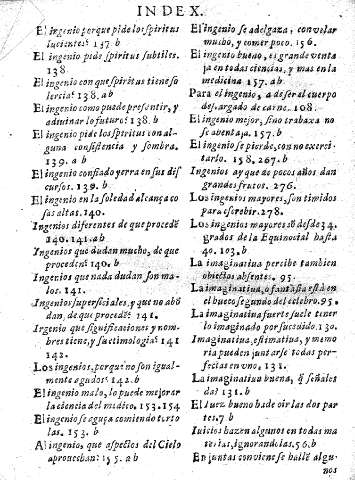 INDEX.
El ingenio porque pide los spiritus
lucientes? 137.b
El ingenio pide spiritus subtiles.
138.
El ingenio con que spiritus tiene so
lercia? 138.ab
El ingenio como puede presentir, y
adiuinar lo futuro? 138.b
El ingenio pide los spiritus con al-
guna consistencia y sombra.
139.ab
El ingenio confiado yerra en sus dis
cursos. 139.b
El ingenio en la soledad alcança co
sas altas. 140.
Ingenios diferentes de que procedē?
140.141.ab
Ingenios que dudan mucho, de que
proceden? 140.b
Ingenios que nada dudan son ma-
los. 141.
Ingenios superficiales, y que no ahō
dan, de que procedē? 141.
Ingenio que significaciones y nom-
bres tiene, y su etimologia? 141
142.
Los ingenios, porque no son igual-
mente agudos? 142.b
El ingenio malo, lo puede mejorar
la ciencia del medico. 153.154
El ingenio se aguça comiendo torto
las. 153.b
Al ingenio, que aspectos del Cielo
aprouechan? 155.ab
El ingenio se adelgaza, con velar
mucho, y comer poco. 156.
El ingenio bueno, el grande venta
ja en todas ciencias, y mas en la
medicina 157.ab
Para el ingenio, a de ser el cuerpo
descargado de carne. 108.
El ingenio mejor, sino trabaxa no
se auentaja. 157.b
El ingenio se pierde, con no exerci-
tarlo. 158.267.b
Ingenios ay que de pocos años dan
grandes frutos. 276.
Los ingenios mayores, son timidos
para escrebir. 278.
Los ingenios mayores sō desde 34.
grados de la Equinocial hasta
40. 103.b
La imaginatiua percibe tambien
obiectos absentes. 95.
La imaginatiua, o fantasia està en
el hueco segundo del celebro. 95.
La imaginatiua fuerte suele tener
lo imaginado por sucedido. 130.
Imaginatiua, estimatiua, y memo
ria pueden juntarse todas per-
fectas en vno. 131.
La imaginatiua buena, q̃ señales
da? 131.b
El Iuez bueno ha de oir las dos par
tes. 7.b
Iuicios hazen algunos en todas ma
terias, ignorandolas. 56.b
En juntas conuiene se hallē algu-
nos